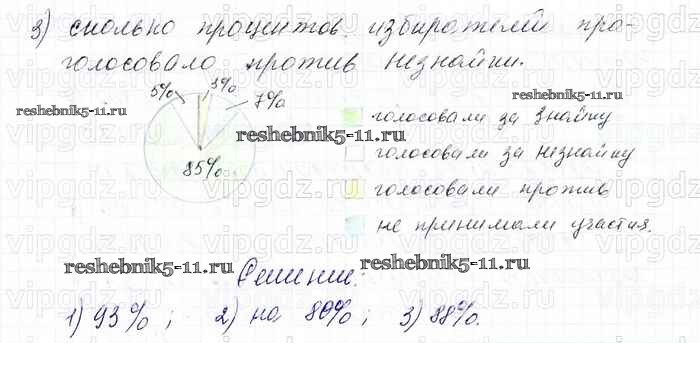 3) сколько процентов избирателей про-
голосовало против Незнайки.
5% 3% 7%
85%
голосовали за Знайку
голосовали за Незнайку
голосовали против
не принимали участия.
Решение:
1) 93%; 2) на 80%; 3) 88%.
reshebnik5-11.ru
reshebnik5-11.ru
reshebnik5-11.ru
reshebnik5-11.ru
reshebnik5-11.ru
vipgdz.ru